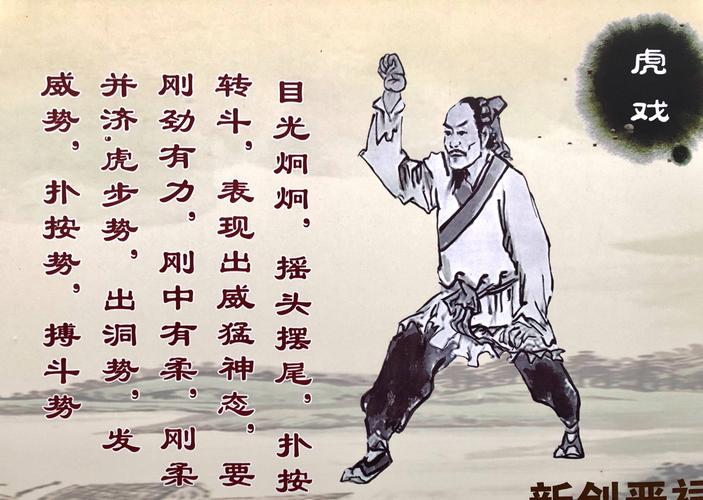 虎戏
目光炯炯，摇头摆尾，扑按
转斗，表现出威猛神态，要
刚劲有力，刚中有柔，刚柔
并济，虎步势，出洞势，发
威势，扑按势，搏斗势
新创晋祠